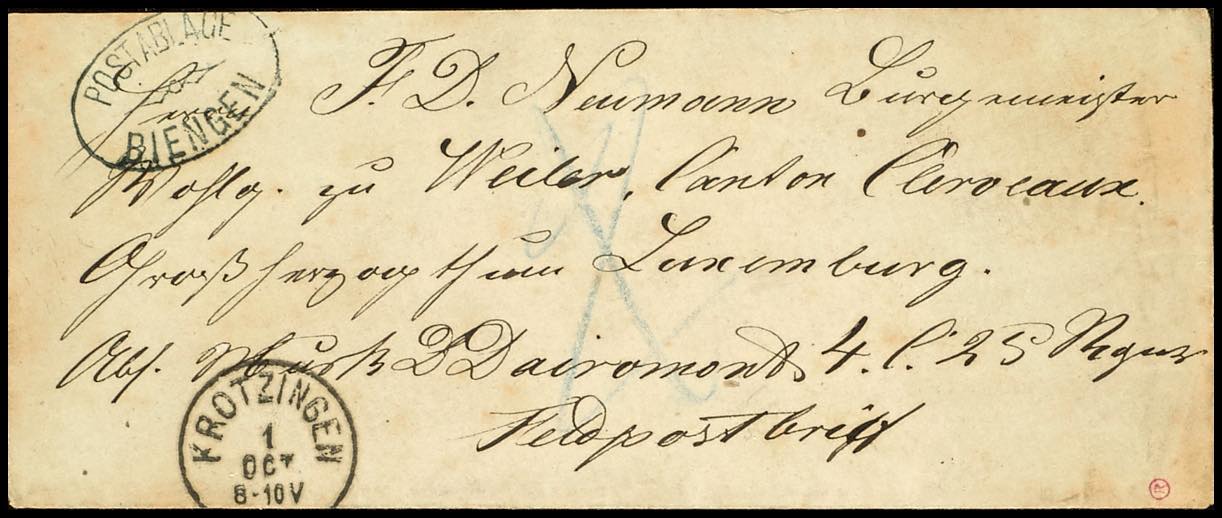 POSTABLAGE
BIENGEN
Herrn F. D. Neumann Burgemeister
Wohlg. zu Weiler, Canton Clerveaux.
Großherzogthum Luxemburg.
Abs. Musk D Dairomont 4. C. 25 Regmt
Feldpostbrief
KROTZINGEN
1
OCT
8-10V
R